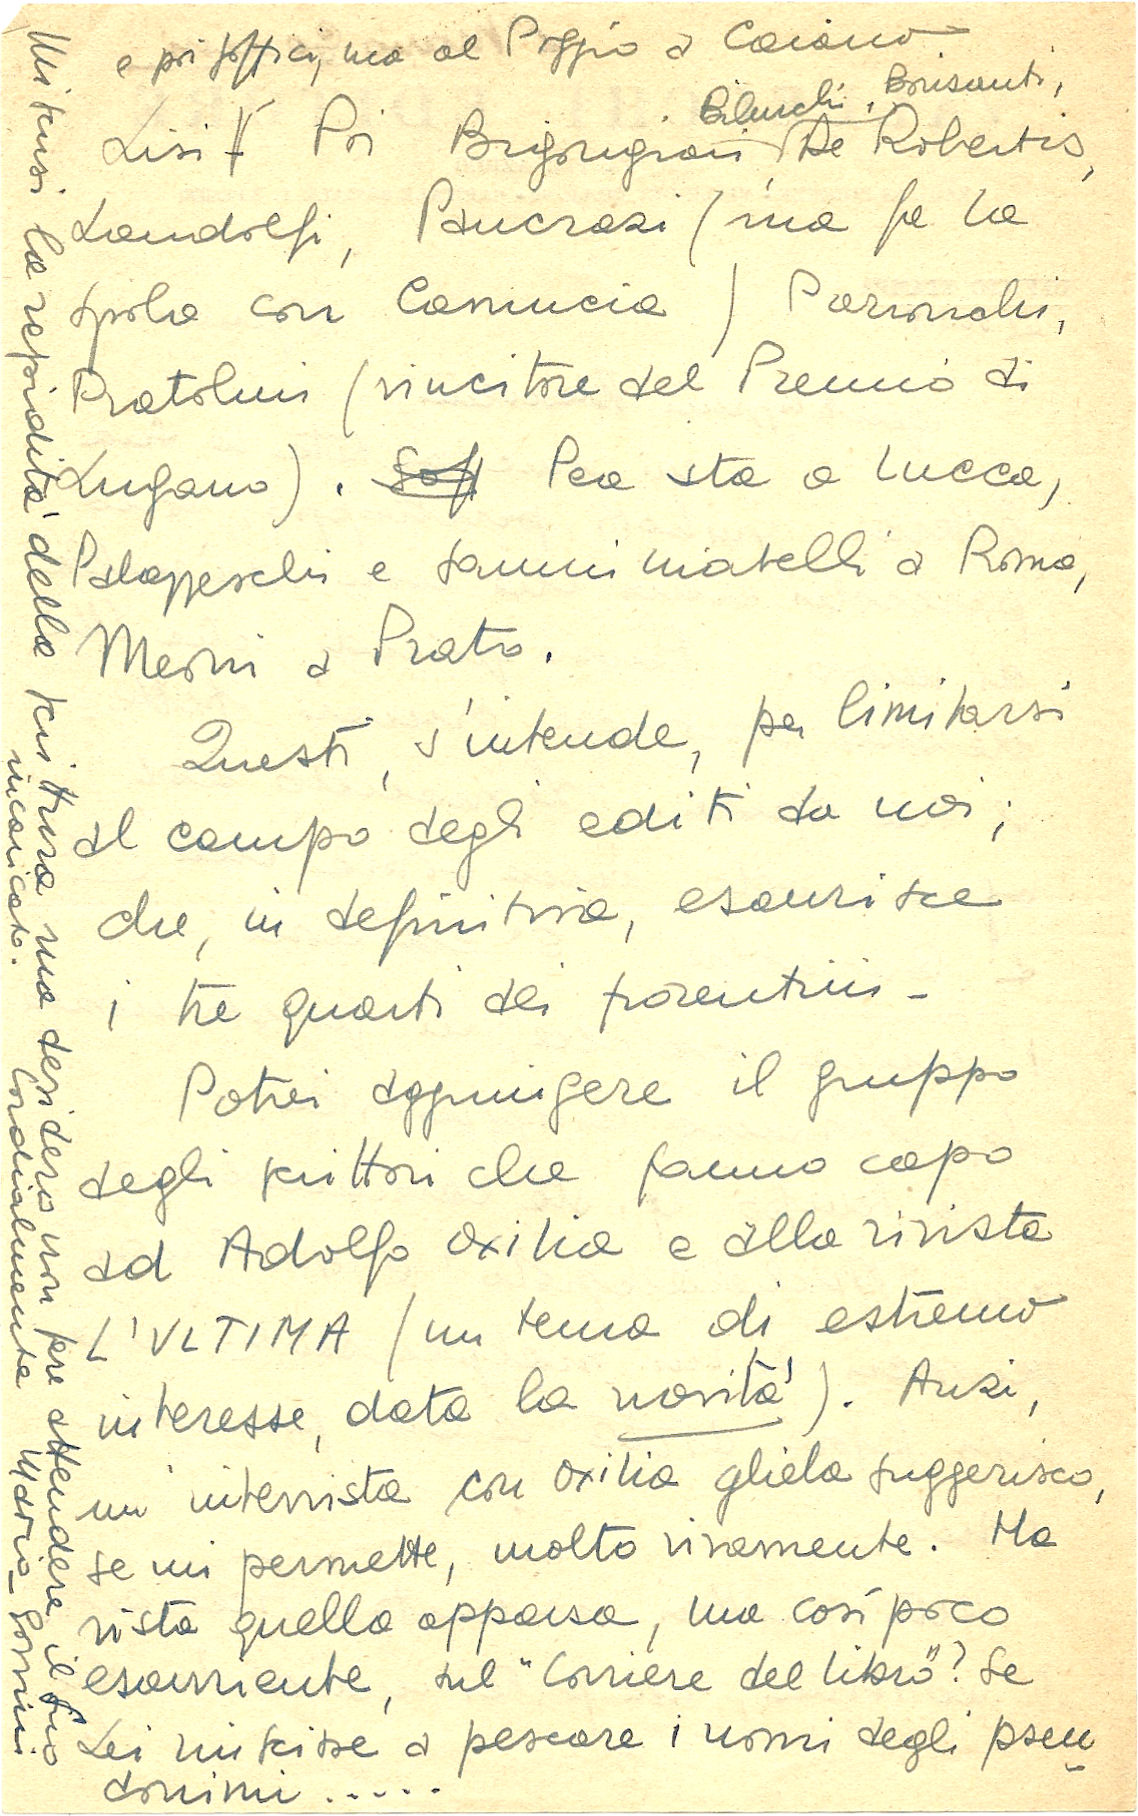 e poi Soffici, ma al Poggio a Caiano
Bilenchi, Bonsanti,
Lisi Poi De Robertis,
Landolfi, Pancrazi (ma fa la
spola con Camucia) Parronchi,
Pratolini (vincitore del Premio di
Lugano). Soff Pea sta a Lucca,
Palazzeschi e Samminiatelli a Roma,
Meoni a Prato.
Questi, s'intende, per limitarsi
al campo degli editi da noi;
che, in definitiva, esaurisce
i tre quarti dei fiorentini -
Potrei aggiungere il gruppo
degli scrittori che fanno capo
ad Adolfo Oxilia e alla rivista
L'VLTIMA (un tema di estremo
interesse, data la novità). Anzi,
un'intervista con Oxilia gliela suggerisco,
se mi permette, molto vivamente. Ha
vista quella apparsa, ma così poco
esauriente, sul "Corriere del libro"? Se
Lei riuscisse a pescare i nomi degli pseu
donimi .....
Mi scusi la rapidità della scrittura ma desidero non fare attendere il suo
incaricato. Cordialmente Mario Gozzini